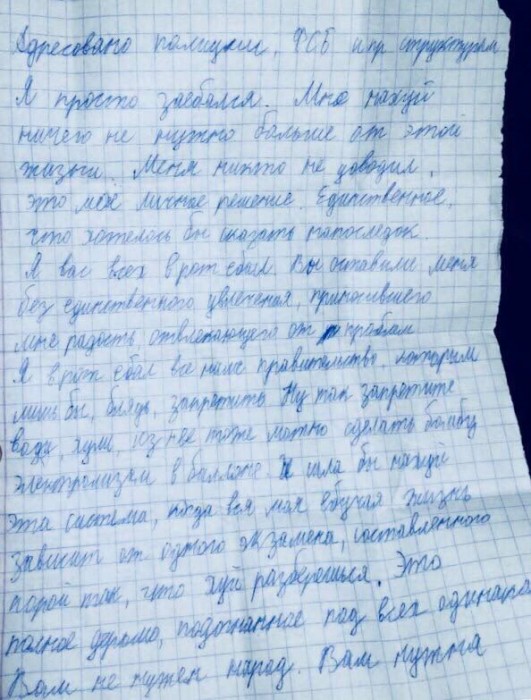 Адресовано полиции, ФСБ и пр структурам
Я просто заебался. Мне нахуй
ничего не нужно больше от этой
жизни. Меня никто не доводил,
это моё личное решение. Единственное,
что хотелось бы сказать напоследок.
Я вас всех в рот ебал. Вы оставили меня
без единственного увлечения, приносившего
мне радость отвлекающего от проблем
Я в рот ебал все наше правительство, которым
лишь бы, блядь, запретить. Ну так запретите
воду, хули, из нее тоже можно сделать бомбу
электролизом в баллоне И шла бы нахуй
эта система, когда вся моя ебучая жизнь
зависит от одного экзамена, составленного
порой так, что хуй разберешься. Это
полное дерьмо, подогнанное под всех одинаково
Вам не нужен народ. Вам нужна